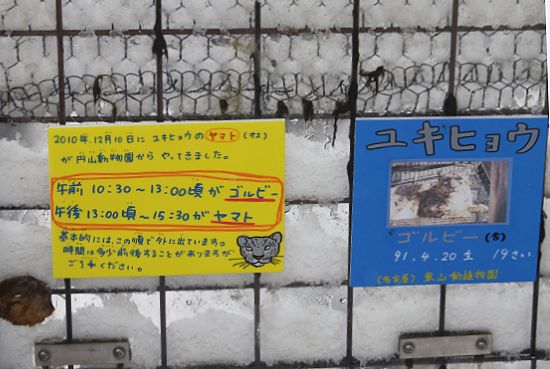 2010年.12月10日に ユキヒョウの ヤマト (オス)
が 円山動物園から やってきました。
午前 10:30～13:00頃が ゴルビー
午後13:00頃～15:30が ヤマト
基本的には、この順で外に出ています。
時間は多少前後することがありますが
ご了承ください。
ユキヒョウ
ゴルビー (♂)
91.4.20 生 19さい
(名古屋) 東山動植物園